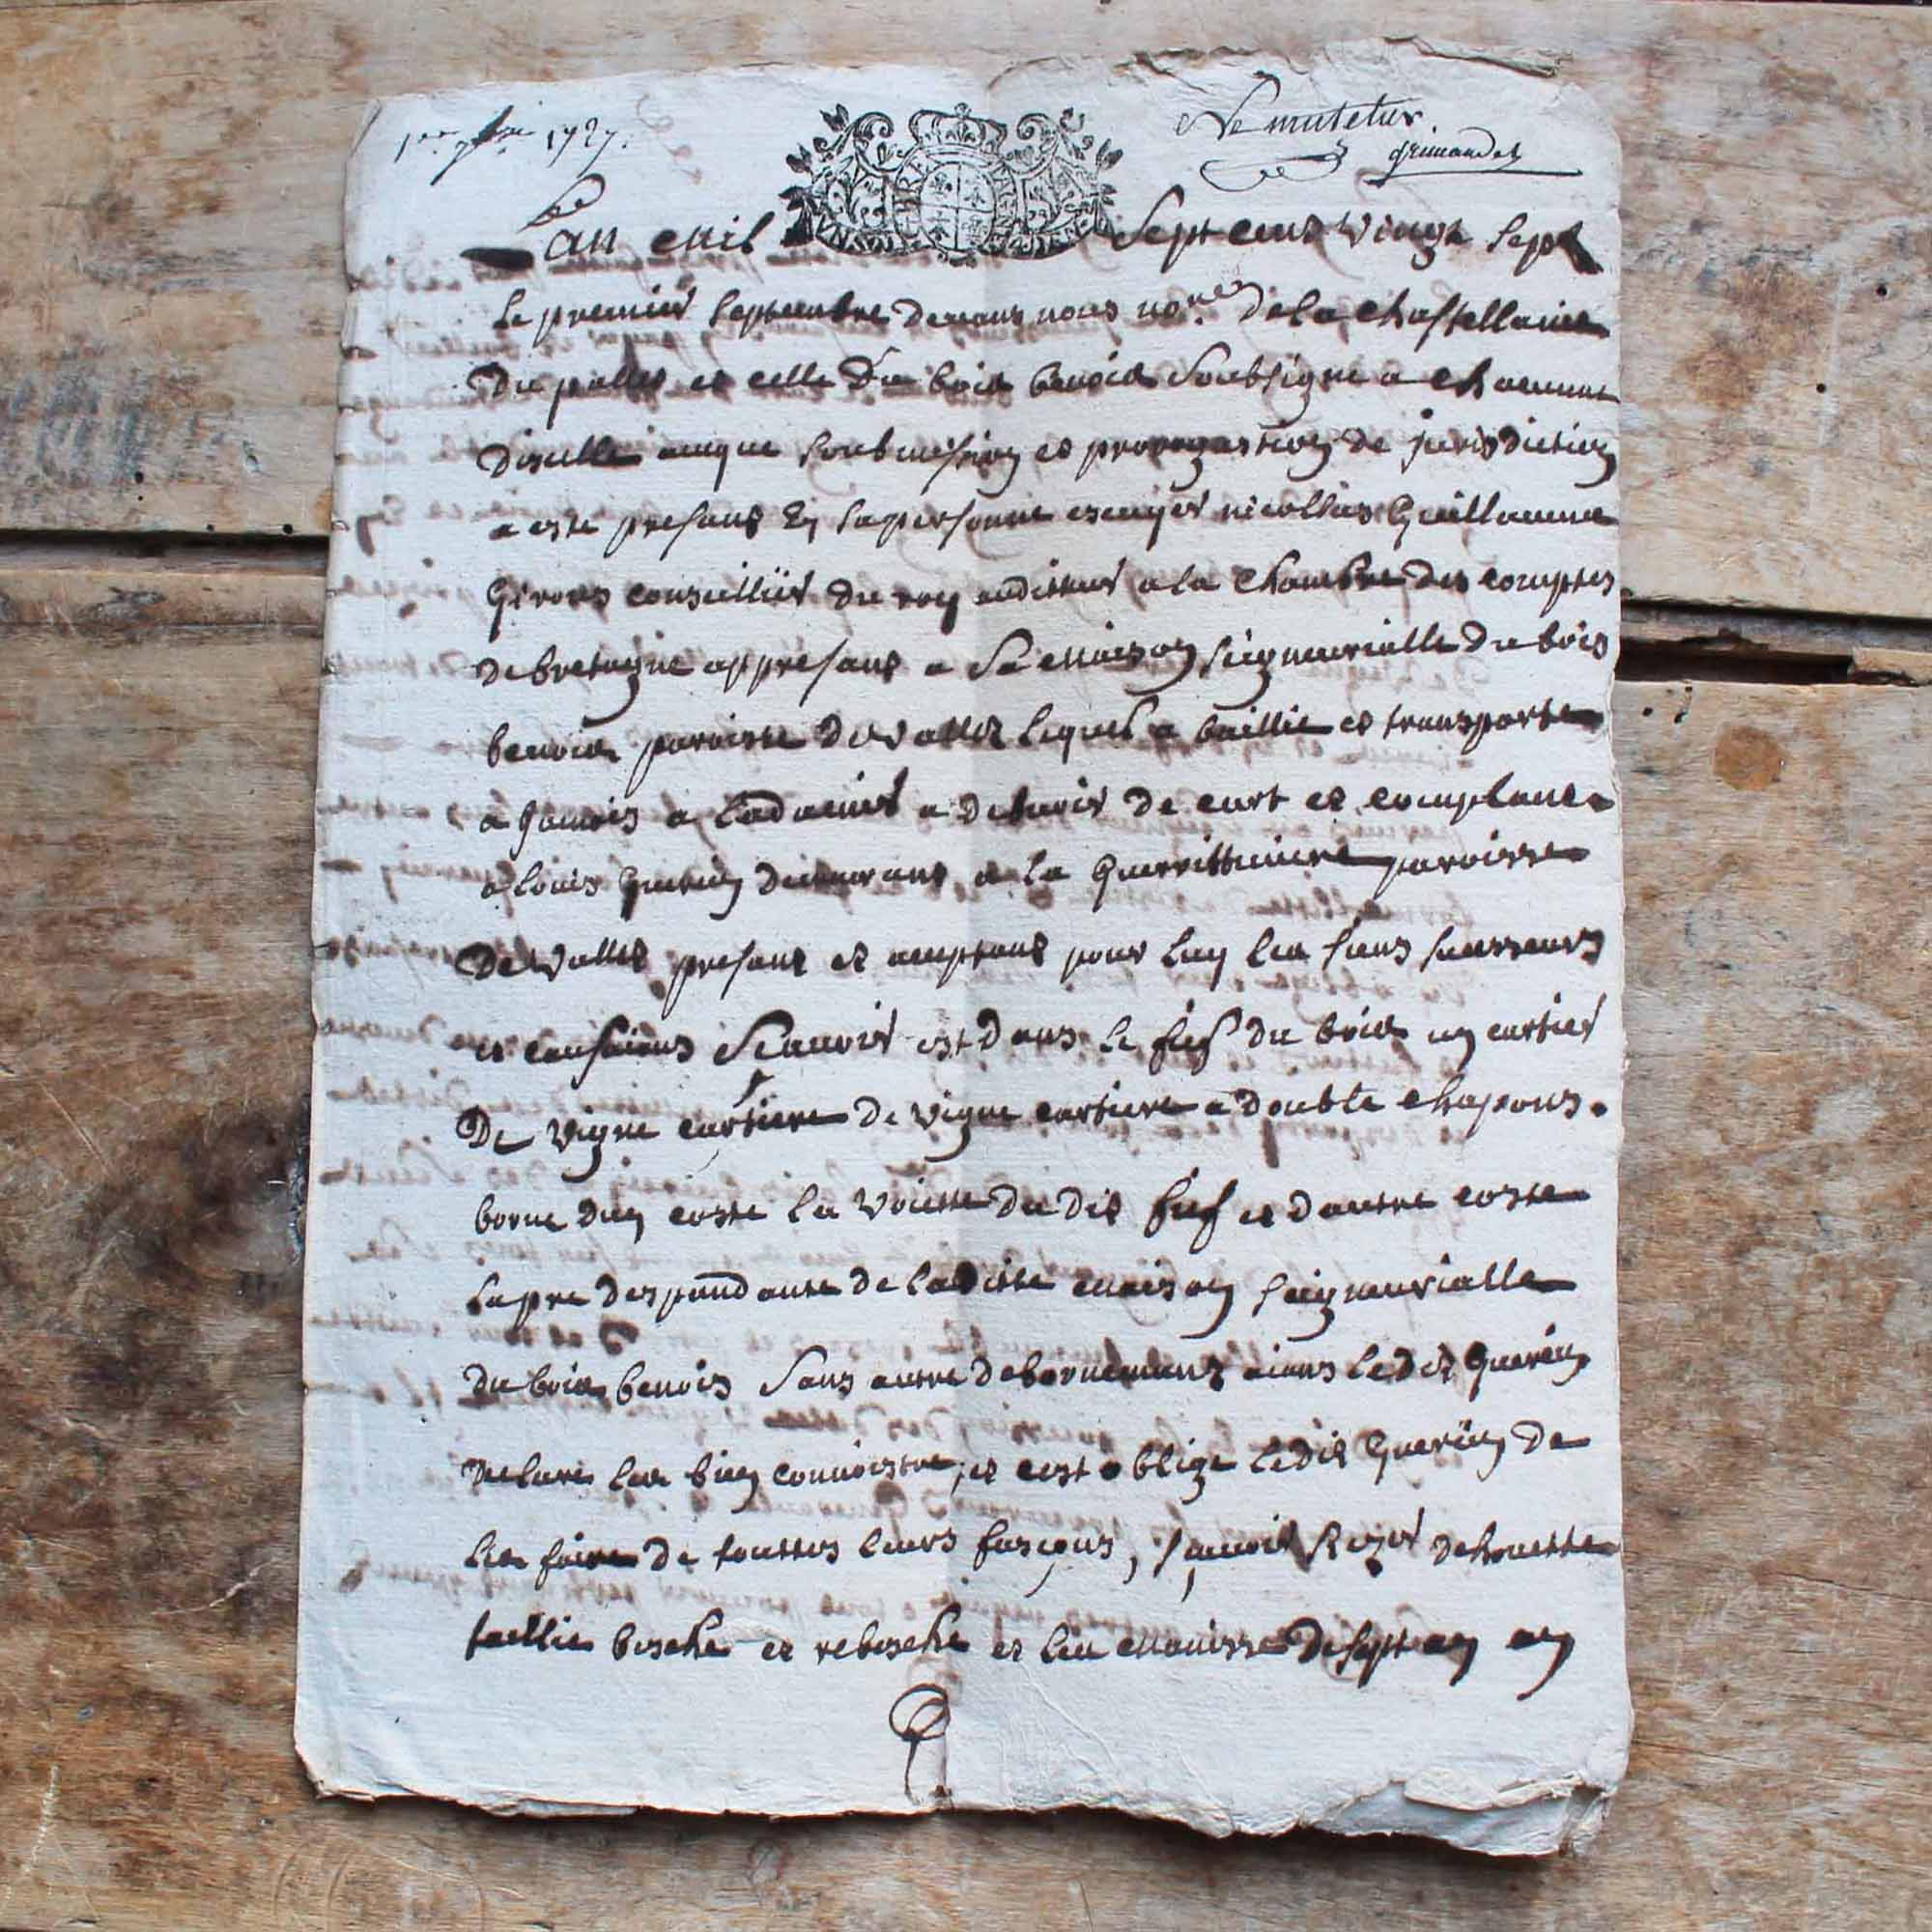 1er 7bre 1727.
Ne mutetur.
grimaudet
Lan mil sept cens vingt sept
le premier septembre devant nous nores de la chastellainie
du pallet et celle du bois benoist soubsigne a chacunne
dicelle avique soubmision et prorogastion de jurisdiction
a este presant en sa personne escuyer nicollas Guillaume
Girard conseillier du roy auditteur a la chambre des comptes
de bretagne appresant a sa maison seigneurialle du bois
benoist paroisse de vallet lequel a baillie et transporte
a jamais a ladvenir a debvoir de cart et complant
a louis Guerin demeurant a la Guerittiniere paroisse
de vallet presant et aceptant pour luy les siens sucesseurs
et causaians Scauoir est dans le fief du bois un cartier
de vigne cartiere de vigne cartiere a double chapons.
borne dun coste la voiette du dit fief et dautre coste
la pre despandante de laditte maison seigneurialle
du bois benois sans autre debornemant aiant ledit Guerin
declare les bien connoistre, et cest oblige ledit Guerin de
les faire de touttes leurs fasçons, sçauoir
taillie besche et rebesche et les de sept en